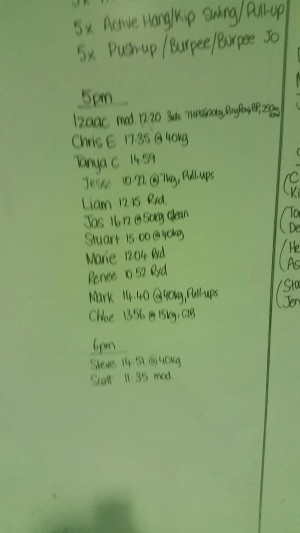 5x Active Hang/Kip Swing/Pull-up
5x Push-up/Burpee/Burpee Jo
5pm
Izaac mod. 12.20 3rds
Chris E 17.35 @ 40kg
Tanya C 14.59
Jess 10.22 @ 7kg, Pull-ups
Liam 12.15 Rxd.
Jas 16.12 @ 50kg Clean
Stuart 15.00 @ 40kg
Marie 12.04 Rxd
Renee 10.52 Rxd
Mark 14.40 @ 40kg, Pull-ups
Chloe 13.56 @ 15kg.
6pm
Steve 14.51 @ 40kg
Scott 11.35 mod.